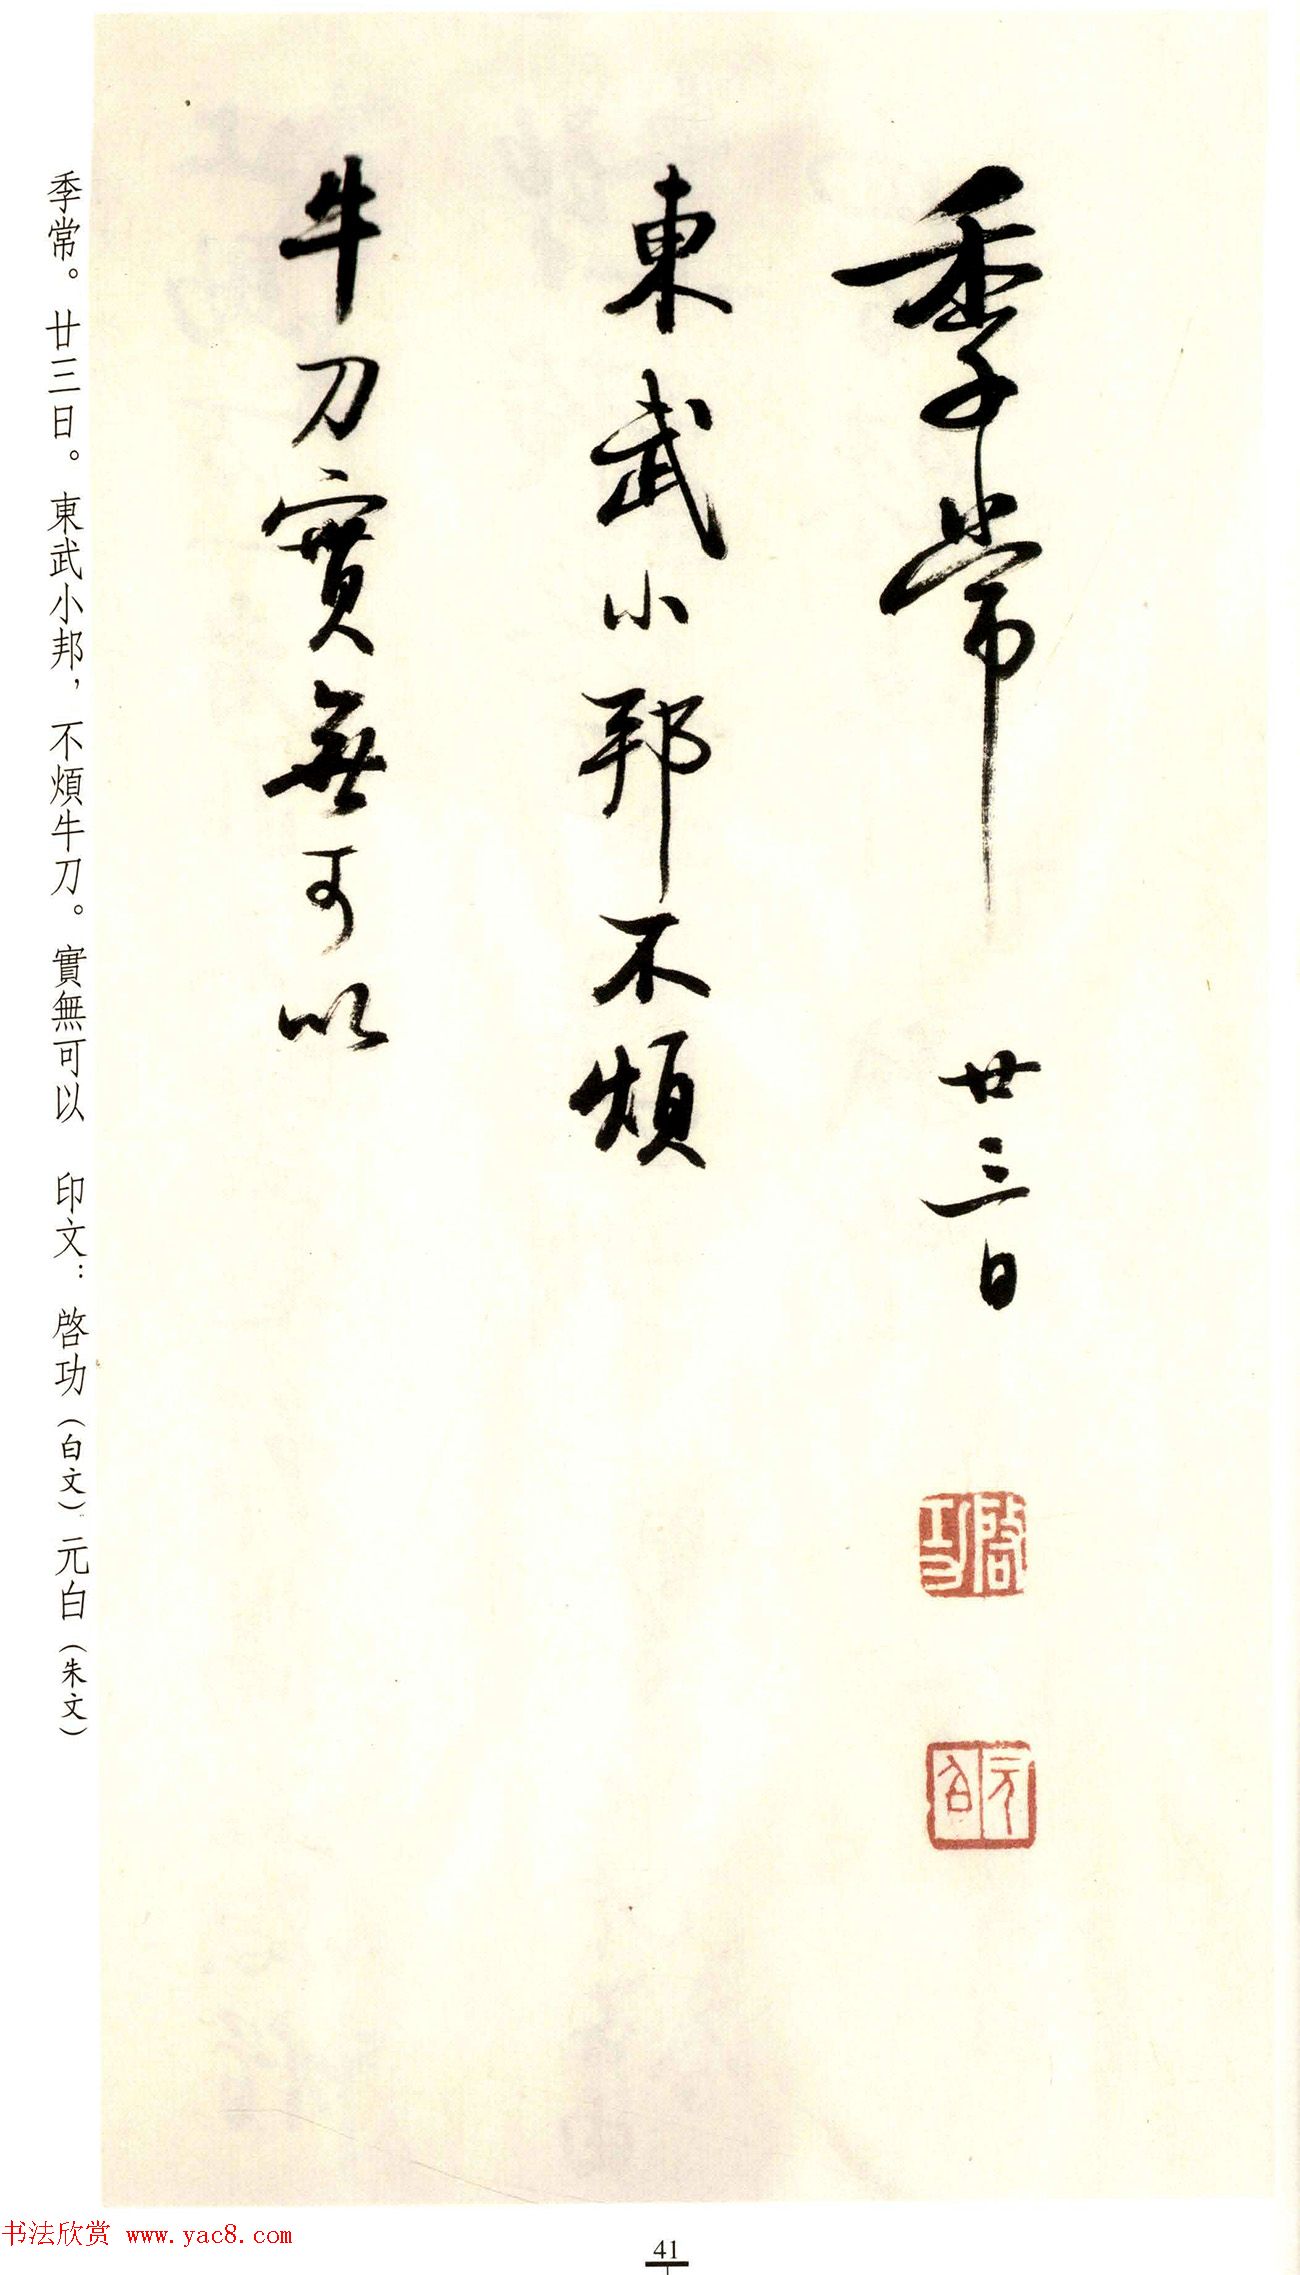 季常 廿三日
啓功
元白
東武小邦不煩
牛刀實無可以
季常。廿三日。東武小邦，不煩牛刀。實無可以 印文：啓功（白文）元白（朱文）
书法欣赏 www.yac8.com
41